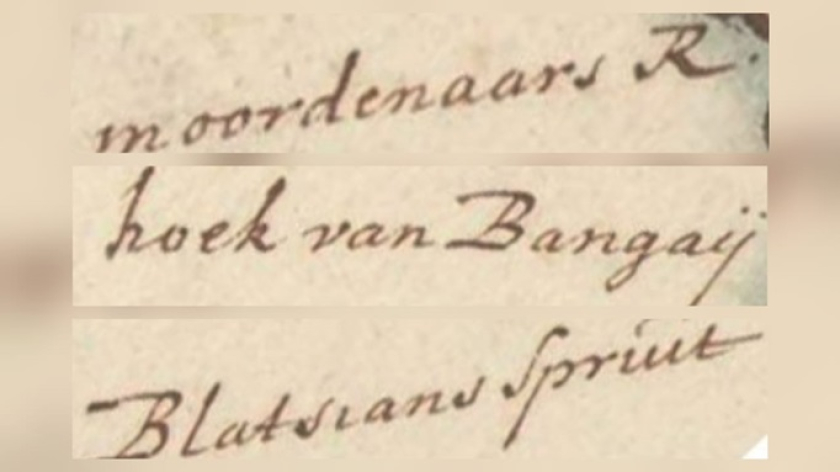 moordenaars R.
hoek van Bangaij
Blatsians Spruit